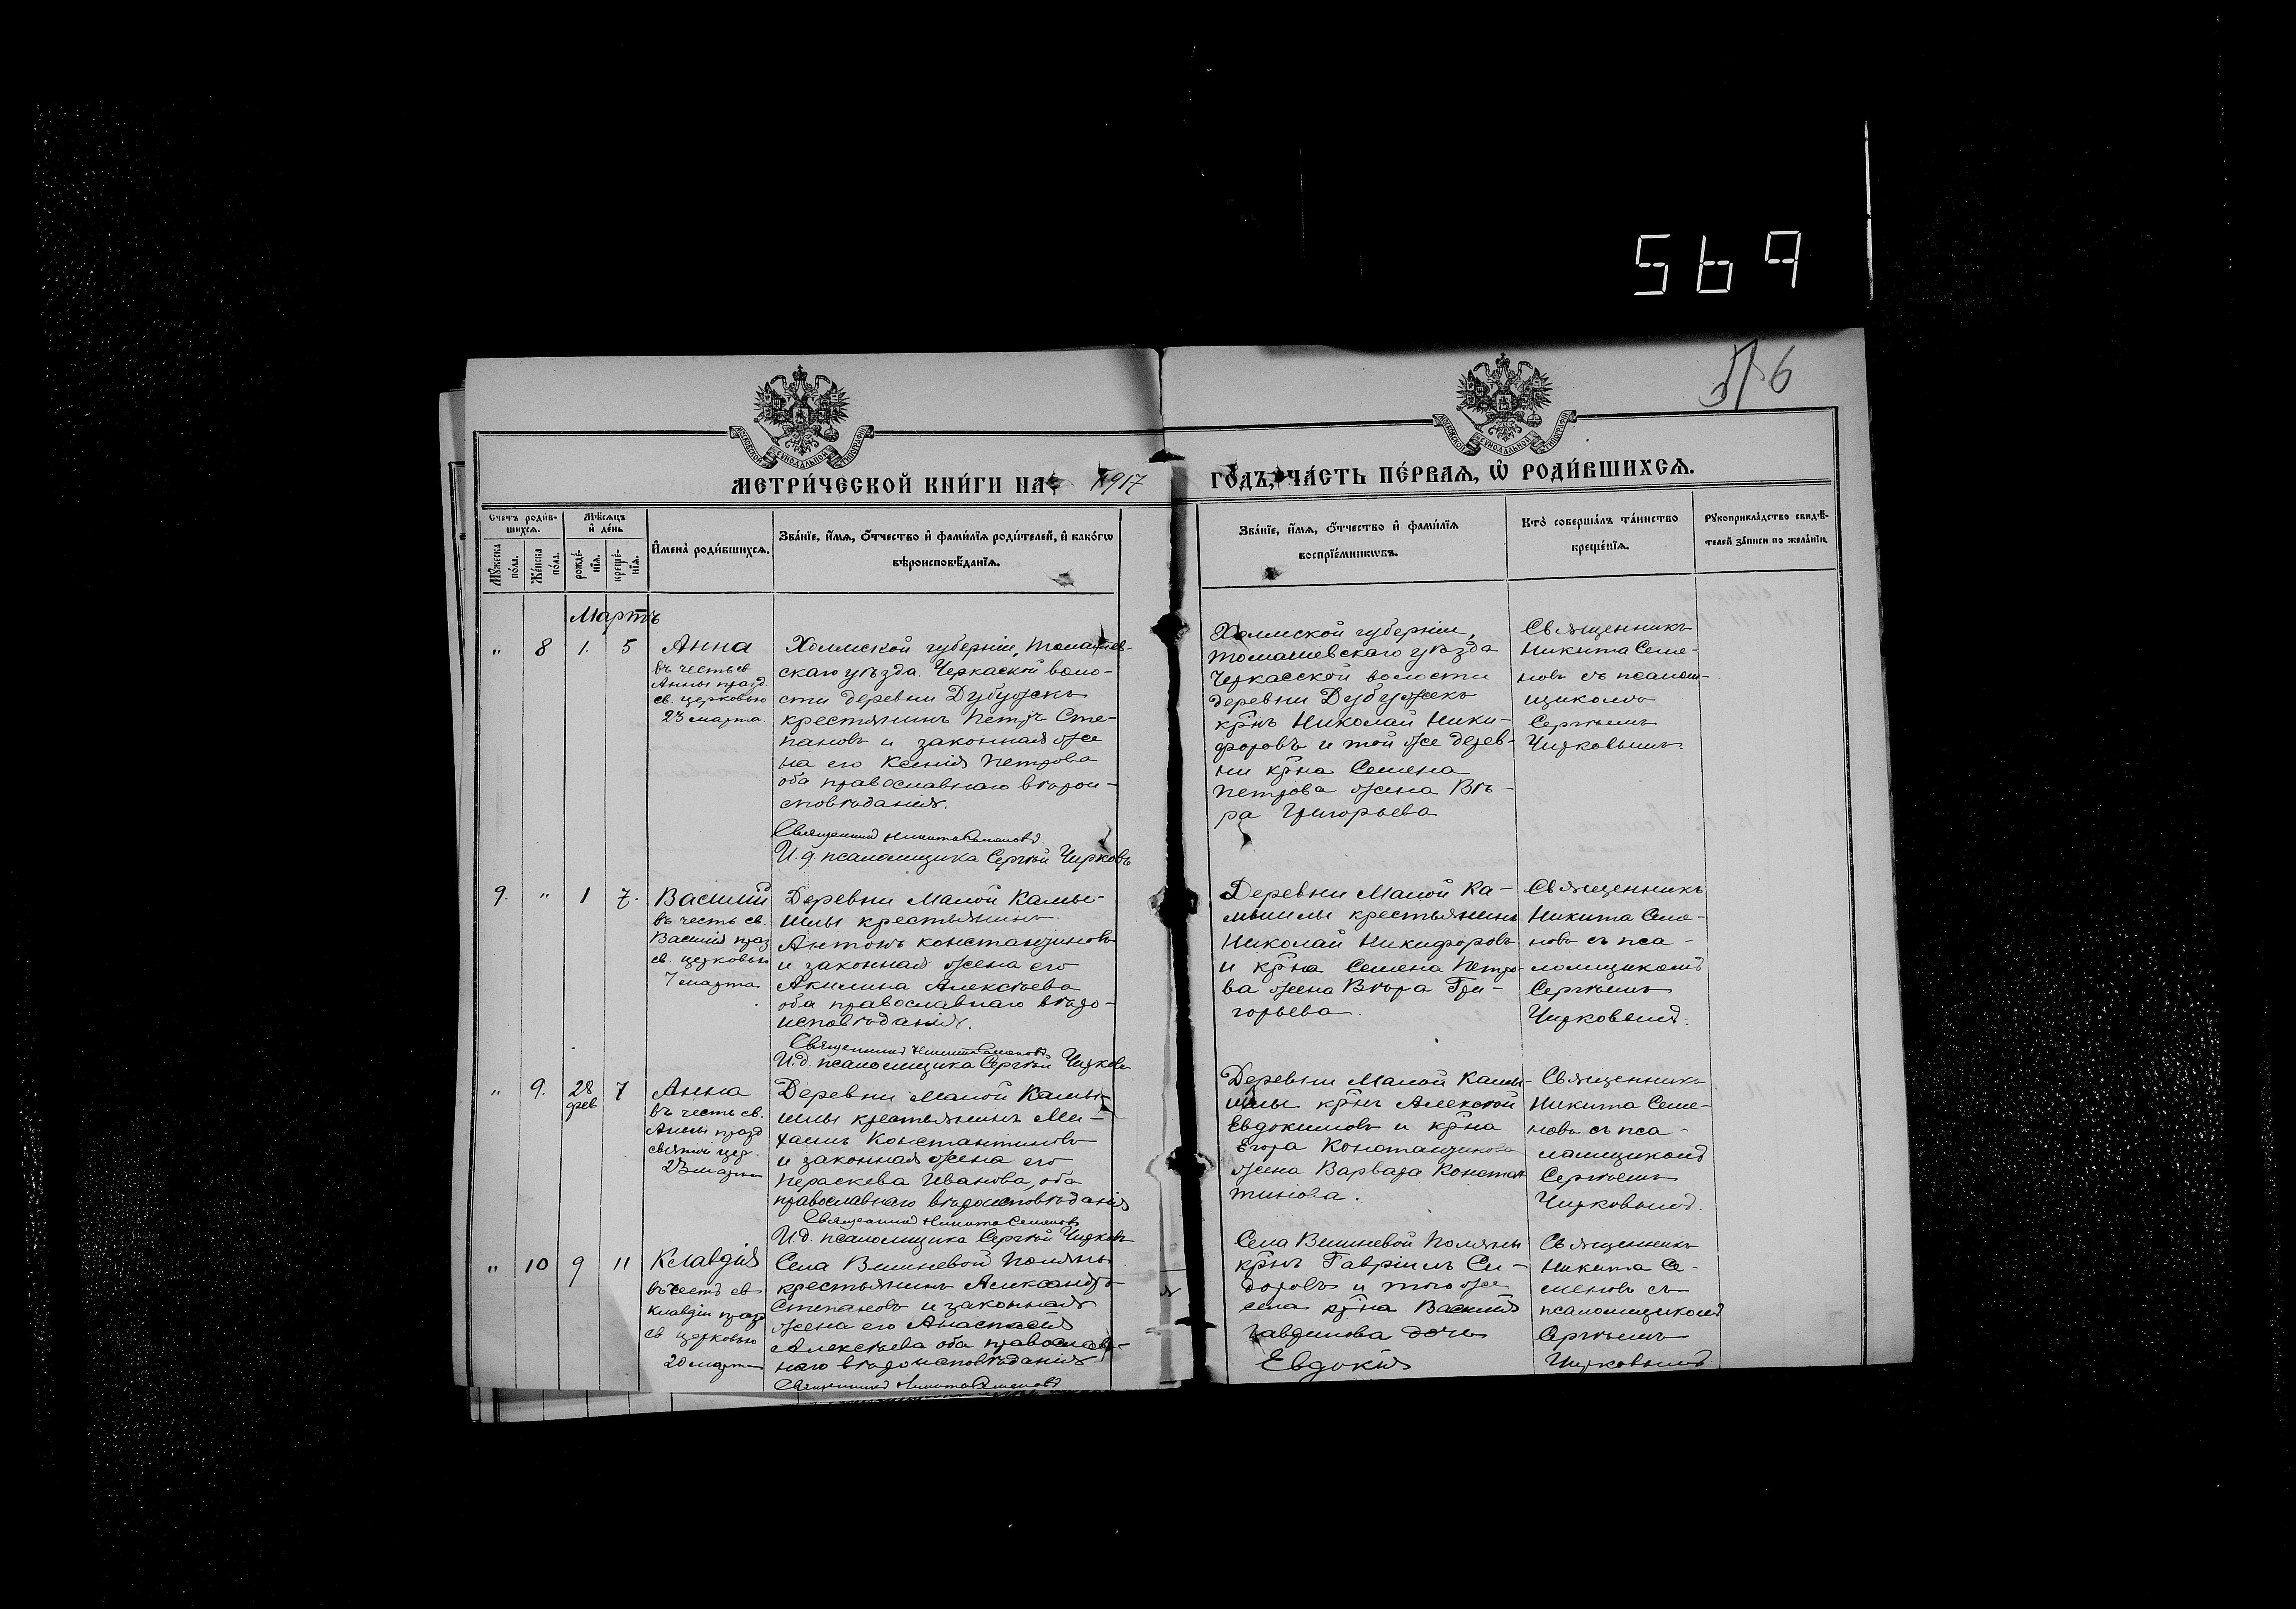 569
6
МОСКОВСКОЙ СУНОДАЛЬНОЙ ТИПОГРАФІИ
МОСКОВСКОЙ СУНОДАЛЬНОЙ ТИПОГРАФІИ
МЕТРИ́ЧЕСКОЙ КНИ́ГИ НА 1917 ГО́ДЪ, ЧА́СТЬ ПЕ́РВАЯ, Ѽ РОДИ́ВШИХСЯ.
Счетъ роди́в-
шихся.
Мѣ́сяцъ
и҆ де́нь
Му́жеска
по́ла.
Же́нска
по́ла.
рожде́-
нїя.
креще́-
нїя.
И҆мена̀ роди́вшихся.
Зва́нїе, и҆́мя, ѻ҆́тчество и҆ фами́лїя роди́телей, и҆ како́гѡ
вѣроисповѣ́данїя.
Зва́нїе, и҆́мя, ѻ҆́тчество и҆ фами́лїя
воспрїе́мникѡвъ.
Кто̀ соверша́лъ та́инство
креще́нїя.
Рꙋкоприкла́дство свидѣ́-
телей за́писи по жела́нїю.
Мартъ
" 8 1. 5
Анна
въ честь св.
Анны празд.
св. церковью
23 марта.
Холмской губерніи, Томашев-
скаго уѣзда. Черкаской воло-
сти деревни Дубужекъ
крестьянинъ Петръ Сте-
пановъ и законная же
на его Ксенія Петрова
оба православнаго вѣрои-
сповѣданія.
Священникъ Никита Семеновъ.
И. д. псаломщика Сергѣй Чирковъ
Холмской губерніи,
Томашевскаго уѣзда
Черкасской волости
деревни Дубужекъ
кр̃нъ Николай Ники-
форовъ и той же дерев-
ни кр̃на Семена
Петрова жена Вѣ-
ра Григорьева
Священникъ
Никита Семе-
новъ съ псалом-
щикомъ
Сергѣемъ
Чирковымъ.
9. " 1 7.
Василій
въ честь св.
Василія праз
св. церковью
7 марта
Деревни Малой Камы-
шлы крестьянинъ
Антонъ Константиновъ
и законная жена его
Акилина Алексѣева
оба православнаго вѣро-
исповѣданія.
Священникъ Никита Семеновъ
И.д. псаломщика Сергѣй Чирковъ
Деревни Малой Ка-
мышлы крестьянинъ
Николай Никифоровъ
и кр̃на Семена Петро-
ва жена Вѣра Гри-
горьева.
Священникъ
Никита Семе-
новъ съ пса-
ломщикомъ
Сергѣемъ
Чирковымъ.
" 9. 28 7
фев
Анна
въ честь св.
Анны празд
святой цер.
23 марта
Деревни Малой Камы-
шлы крестьянинъ Ми-
хаилъ Константиновъ
и законная жена его
Пераскева Иванова, оба
православнаго вѣроисповѣданія
Священникъ Никита Семеновъ
И.д. псаломщика Сергѣй Чирковъ
Деревни Малой Камы-
шлы кр̃нъ Алексѣй
Евдокимовъ и кр̃на
Егора Константинова
жена Варвара Констан
тинова.
Священникъ
Никита Семе-
новъ съ пса-
ломщикомъ
Сергѣемъ
Чирковымъ.
" 10 9 11
Клавдія
въ честь св
Клавдіи празд
св церковью
20 марта
Села Вишневой Поляны
крестьянинъ Александръ
Степановъ и законная
жена его Анастасія
Алексѣева оба православ-
наго вѣроисповѣданія
Священникъ Никита Семеновъ
Села Вишневой Поляны
кр̃нъ Гавріилъ Си-
доровъ и того же
села кр̃на Василія
дочь
Евдокія
Священникъ
Никита Се-
меновъ съ
псаломщикомъ
Сергѣемъ
Чирковымъ